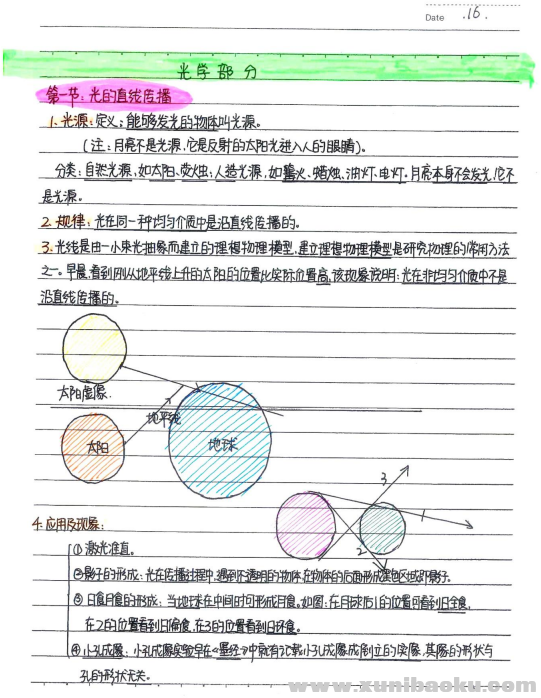 Date .16.
光学部分
第一节:光的直线传播
1. 光源:定义:能够发光的物体叫光源。
(注:月亮不是光源,它是反射的太阳光进入人的眼睛)。
分类:自然光源,如太阳、萤火虫;人造光源,如篝火、蜡烛、油灯、电灯。月亮本身不会发光,它不
是光源。
2. 规律:光在同一种均匀介质中是沿直线传播的。
3. 光线是由一小束光抽象而建立的理想物理模型,建立理想物理模型是研究物理的常用方法
之一。早晨,看到刚从地平线上升的太阳的位置比实际位置高,该现象说明:光在非均匀介质中不是
沿直线传播的。
太阳虚像.
地平线
太阳
地球
3
1
2
4. 应用及现象:
① 激光准直。
②影子的形成:光在传播过程中,遇到不透明的物体,在物体的后面形成黑色区域即影子。
③ 日食月食的形成:当地球在中间时可形成月食。如图:在月球后1的位置可看到日全食,
在2的位置看到日偏食,在3的位置看到日环食。
④ 小孔成像:小孔成像实验早在《墨经》中就有记载小孔成像成倒立的实像,其像的形状与
孔的形状无关。
www.xunibaoku.com